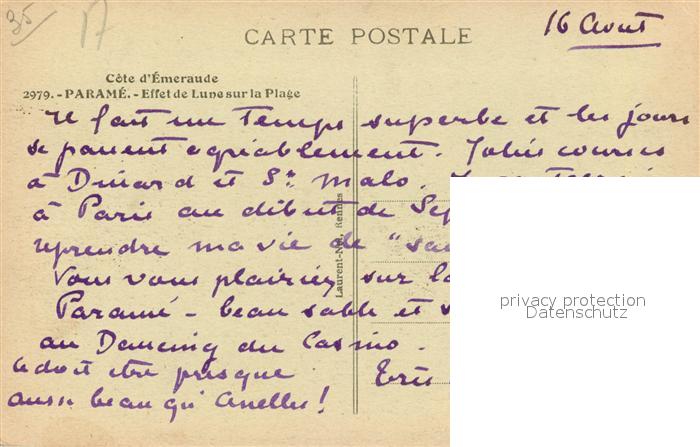 35
17
CARTE POSTALE
16 Aout
Côte d'Émeraude
2979.-PARAMÉ.-Effet de Lune sur la Plage
Il fait un temps superbe et les jours
se passent agréablement. Jolies courses
à Dinard et St. Malo.
à Paris au début de Sep
reprendre ma vie de "sa
Vous vous plairiez sur la
Paramé - beau sable et s
au Dancing du Casino.
ce doit être presque
Très
aussi beau qu'
Laurent-Nel, Rennes
privacy protection
Datenschutz